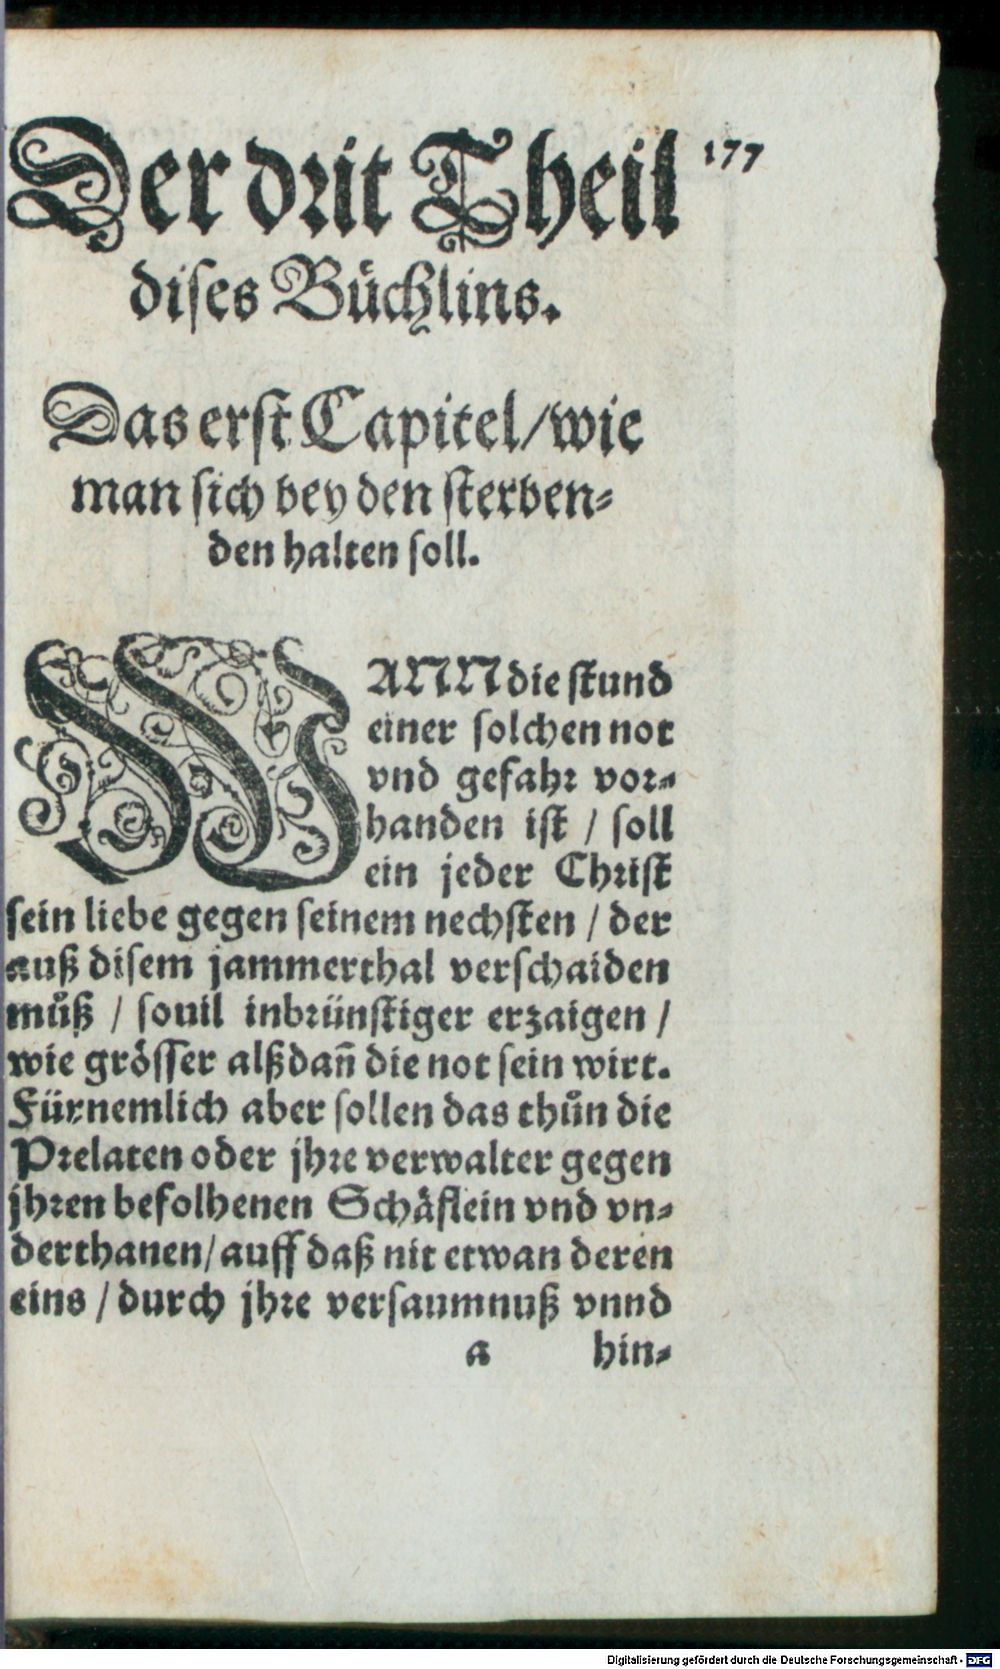 Der drit Theil 177
dises Büchlins.
Das erst Capitel/wie
man sich bey den sterben-
den halten soll.
WANN die stund
einer solchen not
vnd gefahr vor-
handen ist / soll
ein jeder Christ
sein liebe gegen seinem nechsten / der
auß disem jammerthal verschaiden
můß / souil inbrünstiger erzaigen /
wie grösser alßdañ die not sein wirt.
Fürnemlich aber sollen das thůn die
Prelaten oder jhre verwalter gegen
jhren befolhenen Schäflein vnd vn-
derthanen/ auff daß nit etwan deren
eins / durch jhre versaumnuß vnnd
a hin-
Digitalisierung gefördert durch die Deutsche Forschungsgemeinschaft - DFG